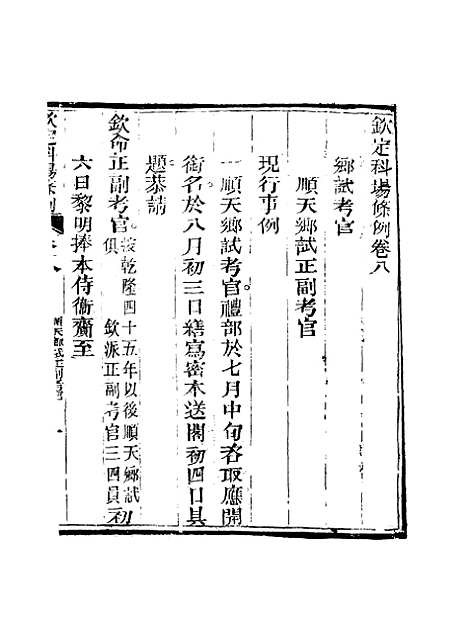 欽定科場條例卷八
鄉試考官
順天鄉試正副考官
現行事例
一順天鄉試考官禮部於七月中旬咨取應開
銜名於八月初三日繕寫密本送閣初四日具
題恭請
欽命正副考官按乾隆四十五年以後順天鄉試俱欽派正副考官三四員初
六日黎明捧本侍衞齎至
欽定科場條例 卷八 順天鄉試正副考官 一